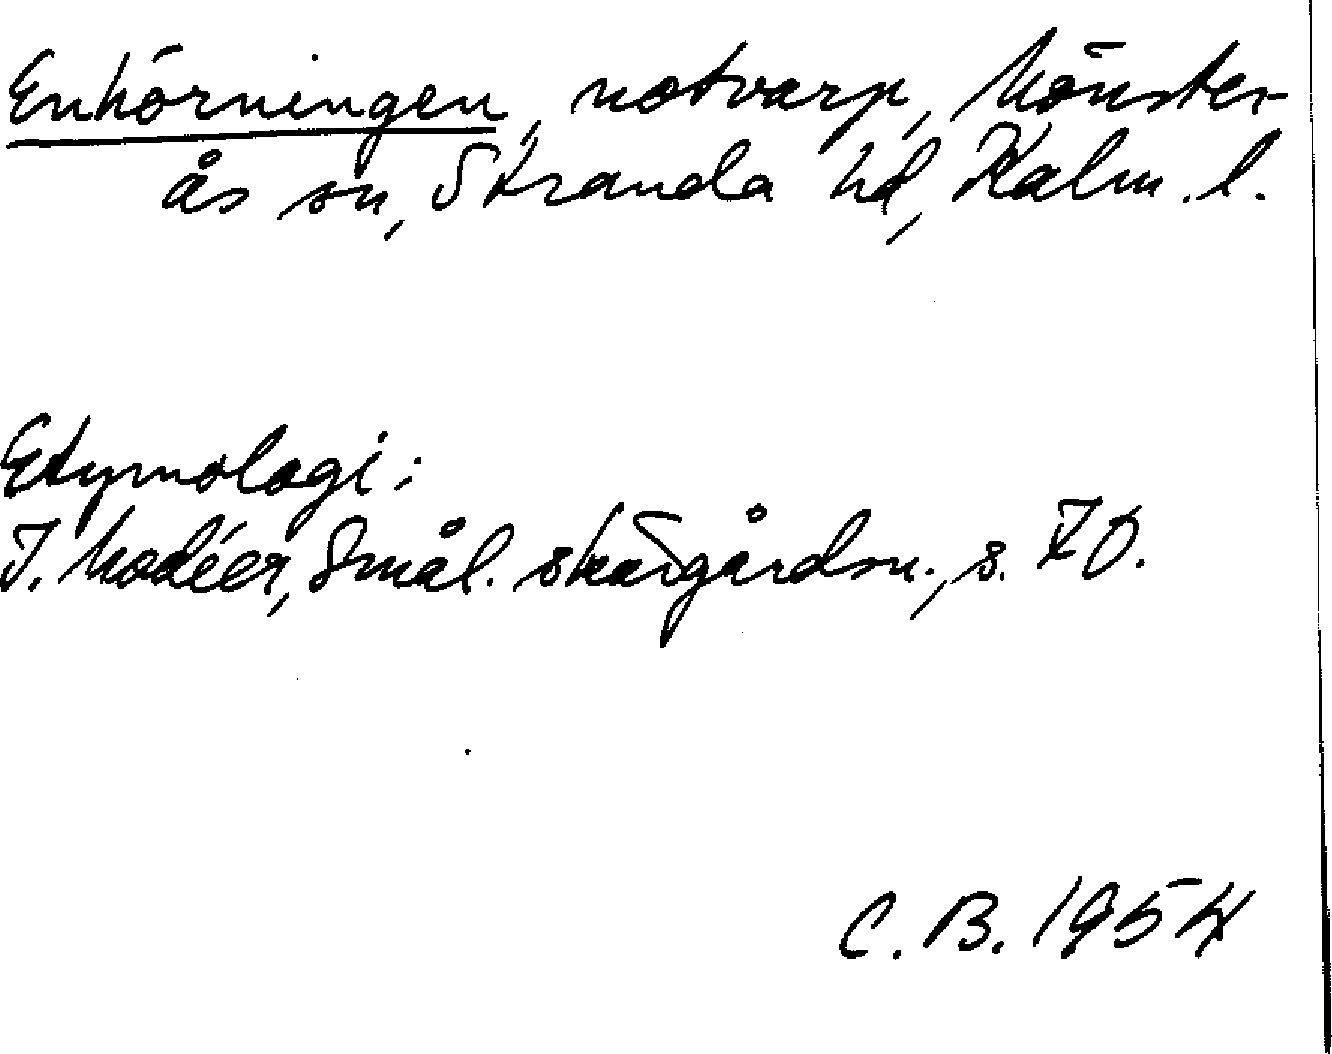 Enhörningen, notvarp, Mönster-
ås sn, Stranda hd, Kalm. l.
Etymologi:
I. Modéer, Smål. skärgårdsn., s. 70.
C. B. 1954